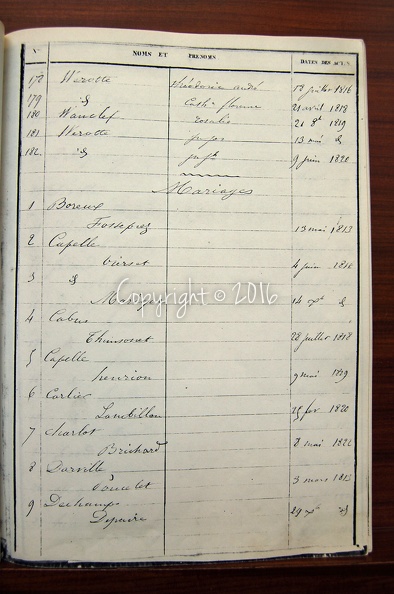 N° NOMS ET PRENOMS DATES DES ACTES
178 Wérotte Théodorine andré 12 juillet 1816
179 id Cath. florence 21 avril 1818
180 Wauclef rosalie 26 8bre 1819
181 Werotte 13 mai id
182 id 9 juin 1820
Mariages
1 Boreux
Fosseprez 13 mai 1813
2 Capelle
4 juin 1816
3 id
14 id
4 Cabus
Thimsonet 28 juillet 1818
5 Capelle
henrion 9 mai 1819
6 Carlier
Lambillon 25 fev 1820
7 Charlot
Brichard 8 mai 1822
8 Darville
Poncelet 3 mars 1813
9 Dechamps
Depaire 29 id
Copyright © 2016